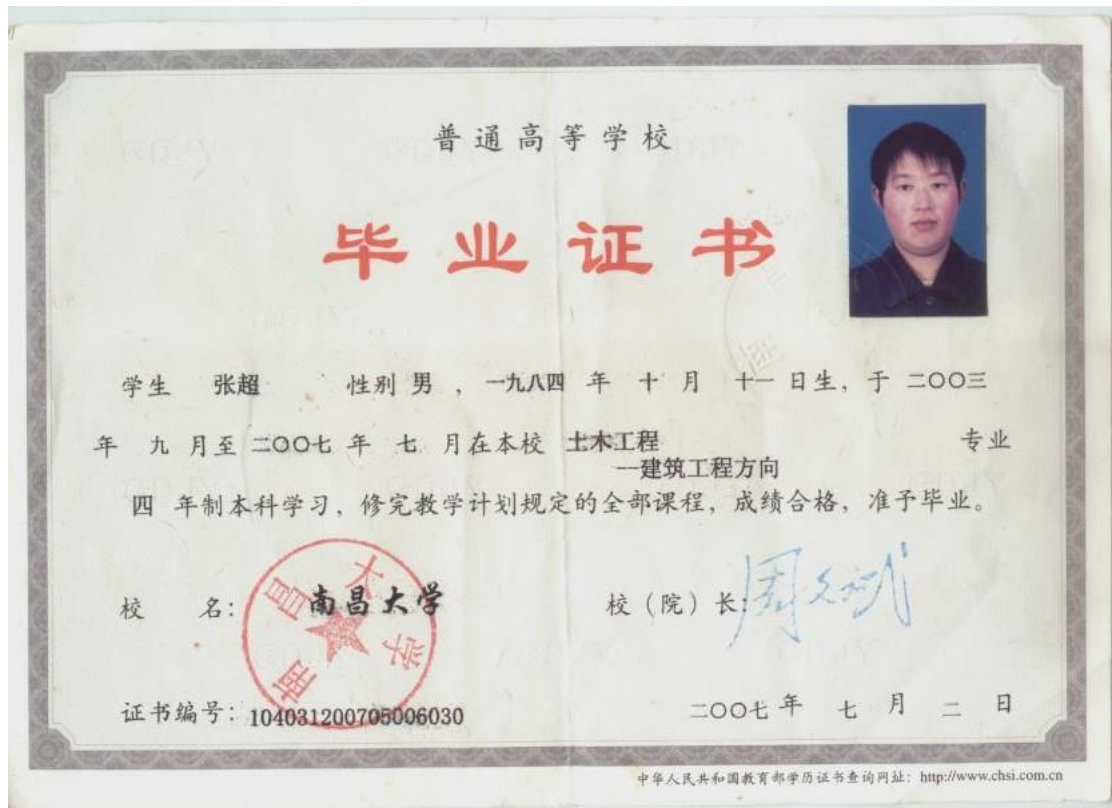 普通高等学校
毕业证书
学生 张超 性别 男 ，一九八四 年 十 月 十一 日生，于 二〇〇三
年 九 月至 二〇〇七 年 七 月在本校 土木工程 专业
--建筑工程方向
四 年制本科学习，修完教学计划规定的全部课程，成绩合格，准予毕业。
校 名： 南昌大学 校（院）长：周文斌
南昌大学
证书编号：104031200705006030 二〇〇七 年 七 月 二 日
中华人民共和国教育部学历证书查询网址：http://www.chsi.com.cn